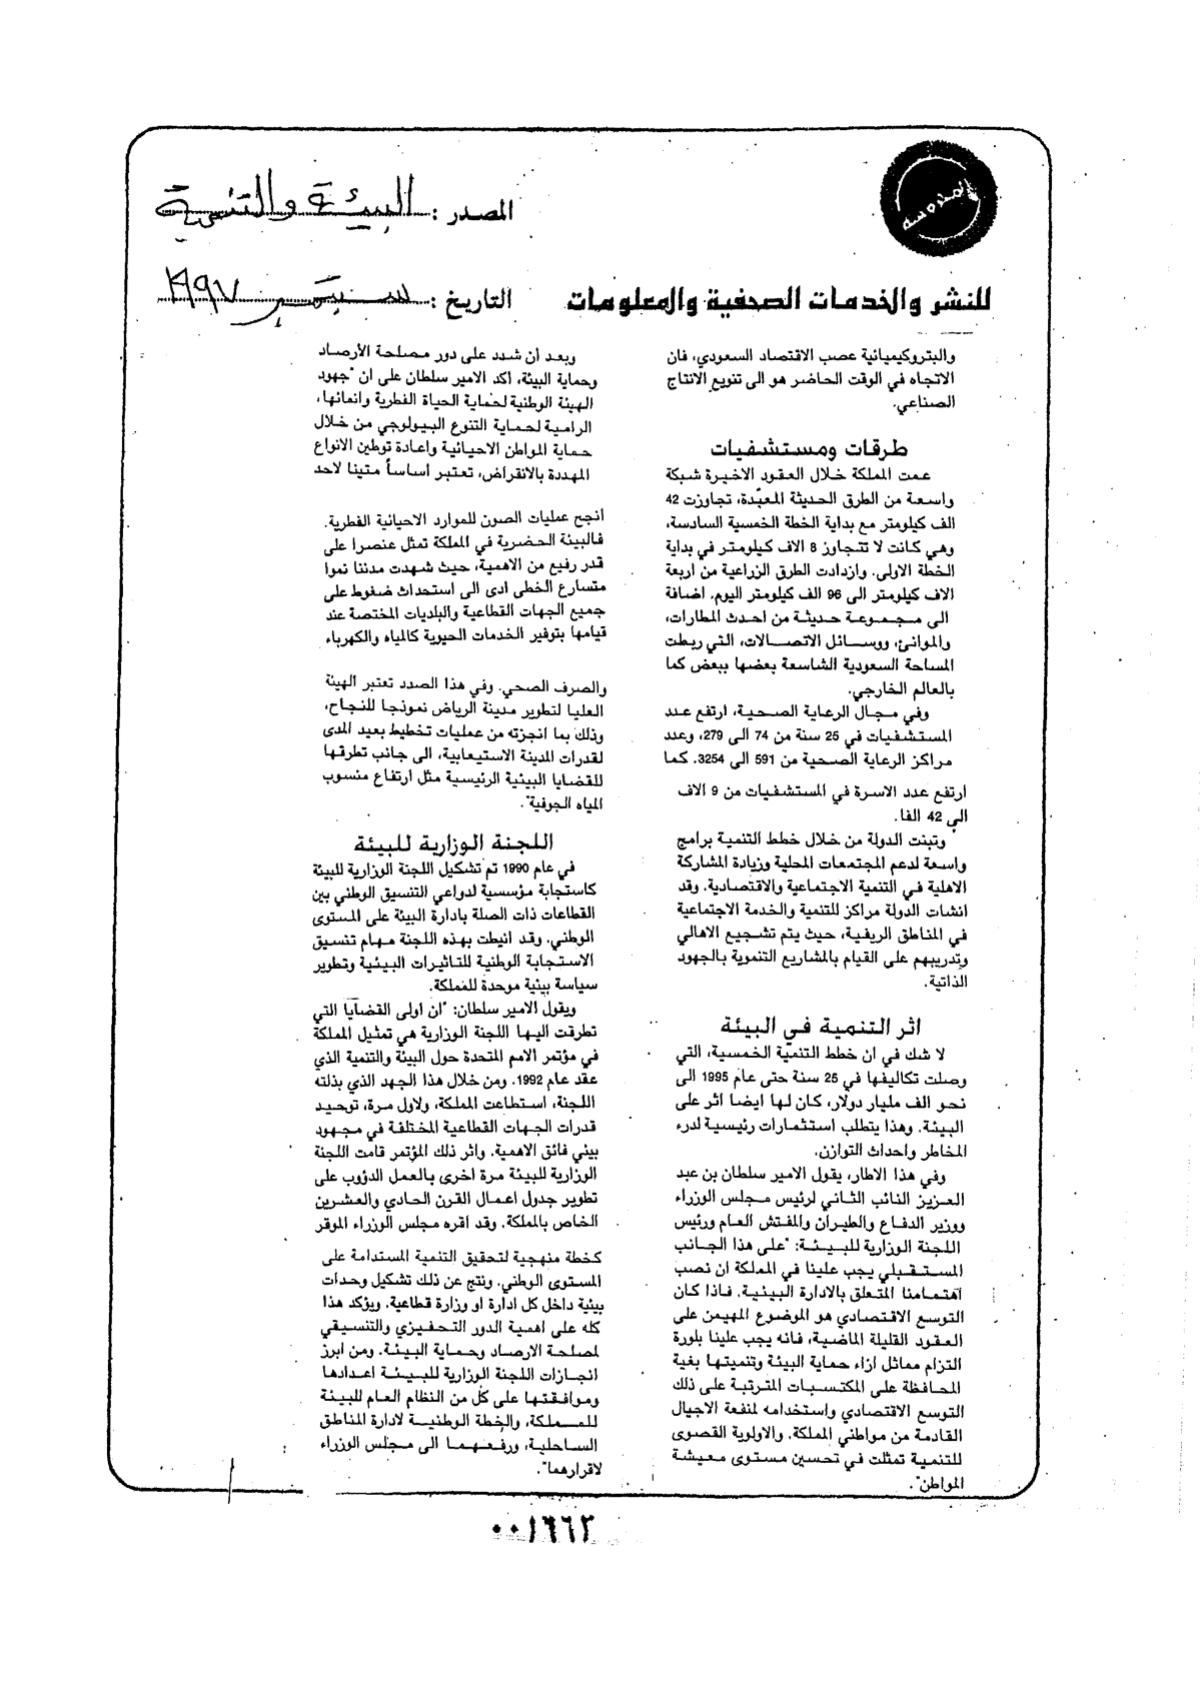 المصدر : البيئة والتنمية
للنشر والخدمات الصحفية والمعلومات
التاريخ : سبتمبر ١٩٩٧
والبتروكيميائية عصب الاقتصاد السعودي، فان
الاتجاه في الوقت الحاضر هو الى تنويع الانتاج
الصناعي.
طرقات ومستشفيات
عمت المملكة خلال العقود الاخيرة شبكة
واسعة من الطرق الحديثة المعبّدة، تجاوزت 42
الف كيلومتر مع بداية الخطة الخمسية السادسة،
وهي كانت لا تتجاوز 8 الاف كيلومتر في بداية
الخطة الاولى. وازدادت الطرق الزراعية من اربعة
الاف كيلومتر الى 96 الف كيلومتر اليوم. اضافة
الى مجموعة حديثة من احدث المطارات،
والموانئ، ووسائل الاتصالات، التي ربطت
المساحة السعودية الشاسعة بعضها ببعض كما
بالعالم الخارجي.
وفي مجال الرعاية الصحية، ارتفع عدد
المستشفيات في 25 سنة من 74 الى 279، وعدد
مراكز الرعاية الصحية من 591 الى 3254. كما
ارتفع عدد الاسرة في المستشفيات من 9 الاف
الى 42 الفا.
وتبنت الدولة من خلال خطط التنمية برامج
واسعة لدعم المجتمعات المحلية وزيادة المشاركة
الاهلية في التنمية الاجتماعية والاقتصادية. وقد
انشات الدولة مراكز للتنمية والخدمة الاجتماعية
في المناطق الريفية، حيث يتم تشجيع الاهالي
وتدريبهم على القيام بالمشاريع التنموية بالجهود
الذاتية.
اثر التنمية في البيئة
لا شك في ان خطط التنمية الخمسية، التي
وصلت تكاليفها في 25 سنة حتى عام 1995 الى
نحو الف مليار دولار، كان لها ايضا اثر على
البيئة. وهذا يتطلب استثمارات رئيسية لدرء
المخاطر واحداث التوازن.
وفي هذا الاطار، يقول الامير سلطان بن عبد
العزيز النائب الثاني لرئيس مجلس الوزراء
ووزير الدفاع والطيران والمفتش العام ورئيس
اللجنة الوزارية للبيئة: "على هذا الجانب
المستقبلي يجب علينا في المملكة ان نصب
اهتمامنا المتعلق بالادارة البيئية. فاذا كان
التوسع الاقتصادي هو الموضوع المهيمن على
العقود القليلة الماضية، فانه يجب علينا بلورة
التزام مماثل ازاء حماية البيئة وتنميتها بغية
المحافظة على المكتسبات المترتبة على ذلك
التوسع الاقتصادي واستخدامه لمنفعة الاجيال
القادمة من مواطني المملكة. والاولوية القصوى
للتنمية تمثلت في تحسين مستوى معيشة
المواطن".
وبعد أن شدد على دور مصلحة الأرصاد
وحماية البيئة، اكد الامير سلطان على ان "جهود
الهيئة الوطنية لحماية الحياة الفطرية وانمائها،
الرامية لحماية التنوع البيولوجي من خلال
حماية المواطن الاحيائية واعادة توطين الانواع
المهددة بالانقراض، تعتبر اساساً متينا لاحد
انجح عمليات الصون للموارد الاحيائية الفطرية.
فالبيئة الحضرية في المملكة تمثل عنصرا على
قدر رفيع من الاهمية، حيث شهدت مدننا نموا
متسارع الخطى ادى الى استحداث ضغوط على
جميع الجهات القطاعية والبلديات المختصة عند
قيامها بتوفير الخدمات الحيوية كالمياه والكهرباء
والصرف الصحي. وفي هذا الصدد تعتبر الهيئة
العليا لتطوير مدينة الرياض نموذجا للنجاح،
وذلك بما انجزته من عمليات تخطيط بعيد المدى
لقدرات المدينة الاستيعابية، الى جانب تطرقها
للقضايا البيئية الرئيسية مثل ارتفاع منسوب
المياه الجوفية".
اللجنة الوزارية للبيئة
في عام 1990 تم تشكيل اللجنة الوزارية للبيئة
كاستجابة مؤسسية لدواعي التنسيق الوطني بين
القطاعات ذات الصلة بادارة البيئة على المستوى
الوطني. وقد انيطت بهذه اللجنة مهام تنسيق
الاستجابة الوطنية للتاثيرات البيئية وتطوير
سياسة بيئية موحدة للمملكة.
ويقول الامير سلطان: "ان اولى القضايا التي
تطرقت اليها اللجنة الوزارية هي تمثيل المملكة
في مؤتمر الامم المتحدة حول البيئة والتنمية الذي
عقد عام 1992. ومن خلال هذا الجهد الذي بذلته
اللجنة، استطاعت المملكة، ولاول مرة، توحيد
قدرات الجهات القطاعية المختلفة في مجهود
بيئي فائق الاهمية. واثر ذلك المؤتمر قامت اللجنة
الوزارية للبيئة مرة اخرى بالعمل الدؤوب على
تطوير جدول اعمال القرن الحادي والعشرين
الخاص بالمملكة. وقد اقره مجلس الوزراء الموقر
كخطة منهجية لتحقيق التنمية المستدامة على
المستوى الوطني. ونتج عن ذلك تشكيل وحدات
بيئية داخل كل ادارة او وزارة قطاعية. ويؤكد هذا
كله على اهمية الدور التحفيزي والتنسيقي
لمصلحة الارصاد وحماية البيئة. ومن ابرز
انجازات اللجنة الوزارية للبيئة اعدادها
وموافقتها على كل من النظام العام للبيئة
للمملكة، والخطة الوطنية لادارة المناطق
الساحلية، ورفعهما الى مجلس الوزراء
لاقرارهما".
٠٠١٦٦٢